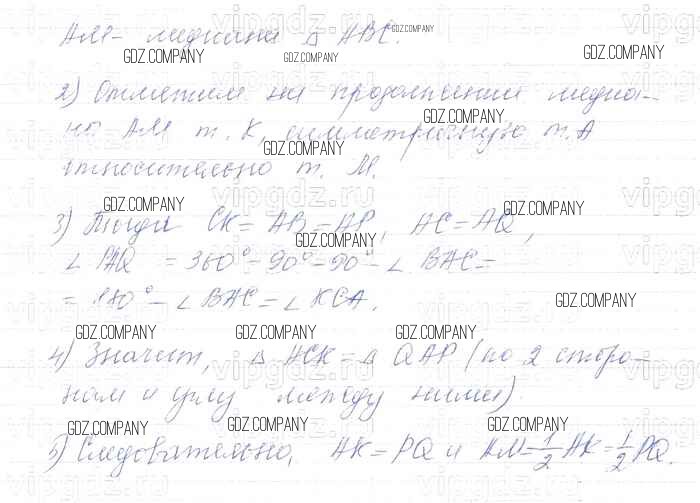 АМ - медиана △ ABC.
2) Отметим на продолжении медиа-
ны АМ т. K, симметричную т. А
относительно т. М.
3) Тогда CK = AB = AP, AC = AQ,
∠ PAQ = 360° - 90° - 90° - ∠ BAC =
= 180° - ∠ BAC = ∠ KCA.
4) Значит, △ ACK = △ QAP (по 2 сторо-
нам и углу между ними).
5) Следовательно, AK = PQ и AM = 1/2 AK = 1/2 PQ.
GDZ.COMPANY
vipgdz.ru